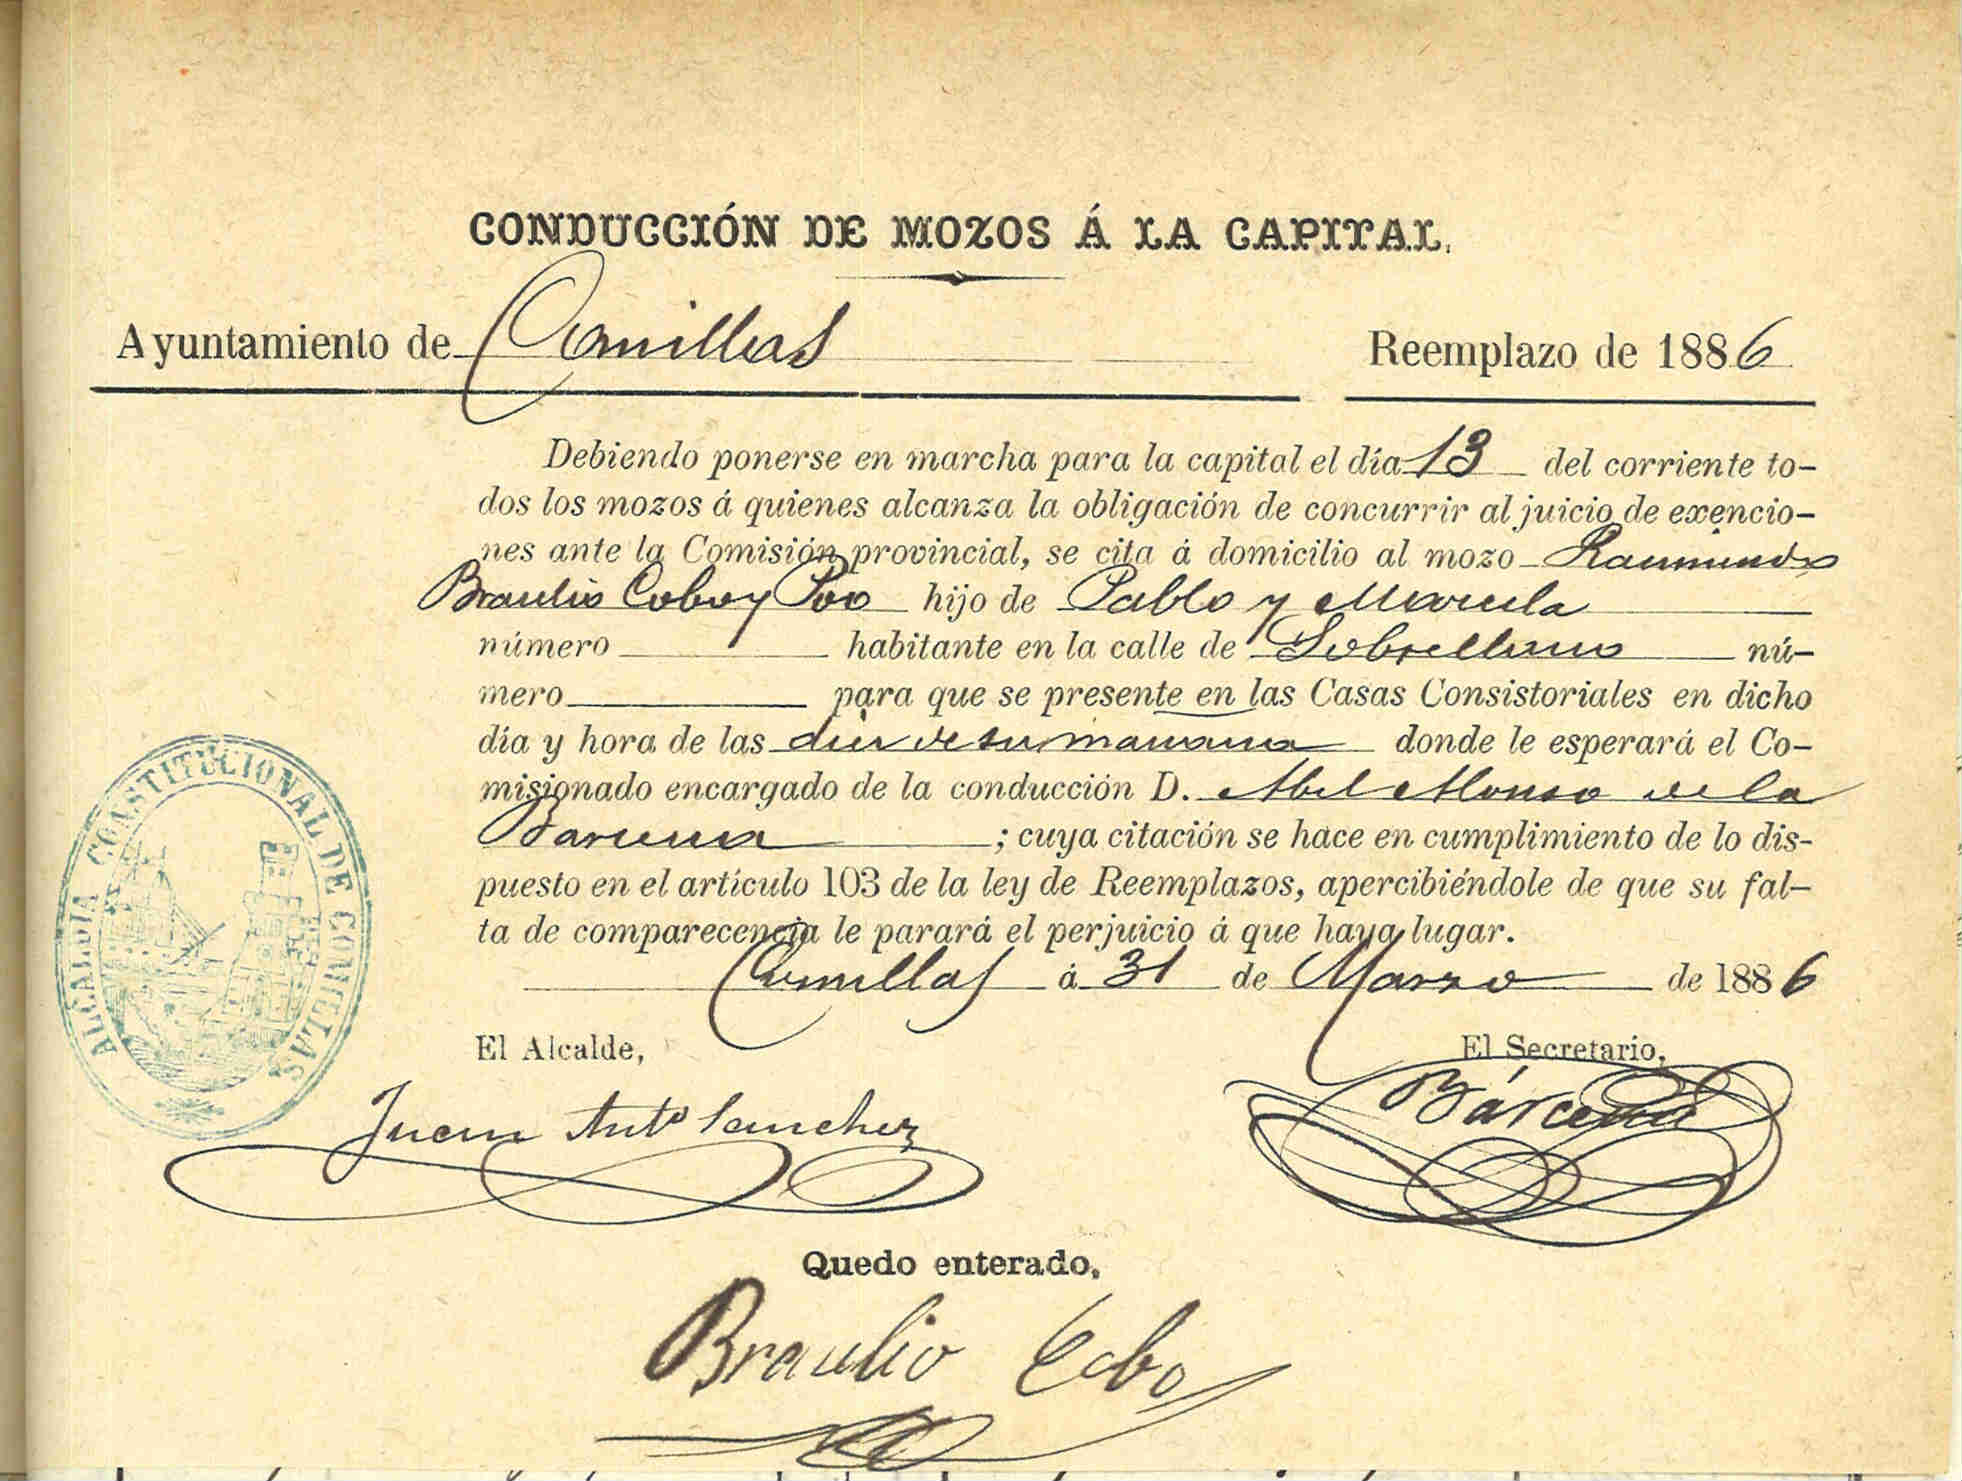 CONDUCCIÓN DE MOZOS Á LA CAPITAL.
Ayuntamiento de Comillas Reemplazo de 1886
Debiendo ponerse en marcha para la capital el día 13 del corriente to-
dos los mozos á quienes alcanza la obligación de concurrir al juicio de exencio-
nes ante la Comisión provincial, se cita á domicilio al mozo Raimundo
Braulio Cobo y Poo hijo de Pablo y Marcela
número habitante en la calle de Sobrellano nú-
mero para que se presente en las Casas Consistoriales en dicho
día y hora de las diez de su mañana donde le esperará el Co-
misionado encargado de la conducción D. Abel Alonso de la
Barcena ; cuya citación se hace en cumplimiento de lo dis-
puesto en el artículo 103 de la ley de Reemplazos, apercibiéndole de que su fal-
ta de comparecencia le parará el perjuicio á que haya lugar.
Comillas á 31 de Marzo de 1886
ALCALDIA CONSTITUCIONAL DE COMILLAS
El Alcalde, El Secretario,
Juan Antº Sanchez Bárcena
Quedo enterado,
Braulio Cobo